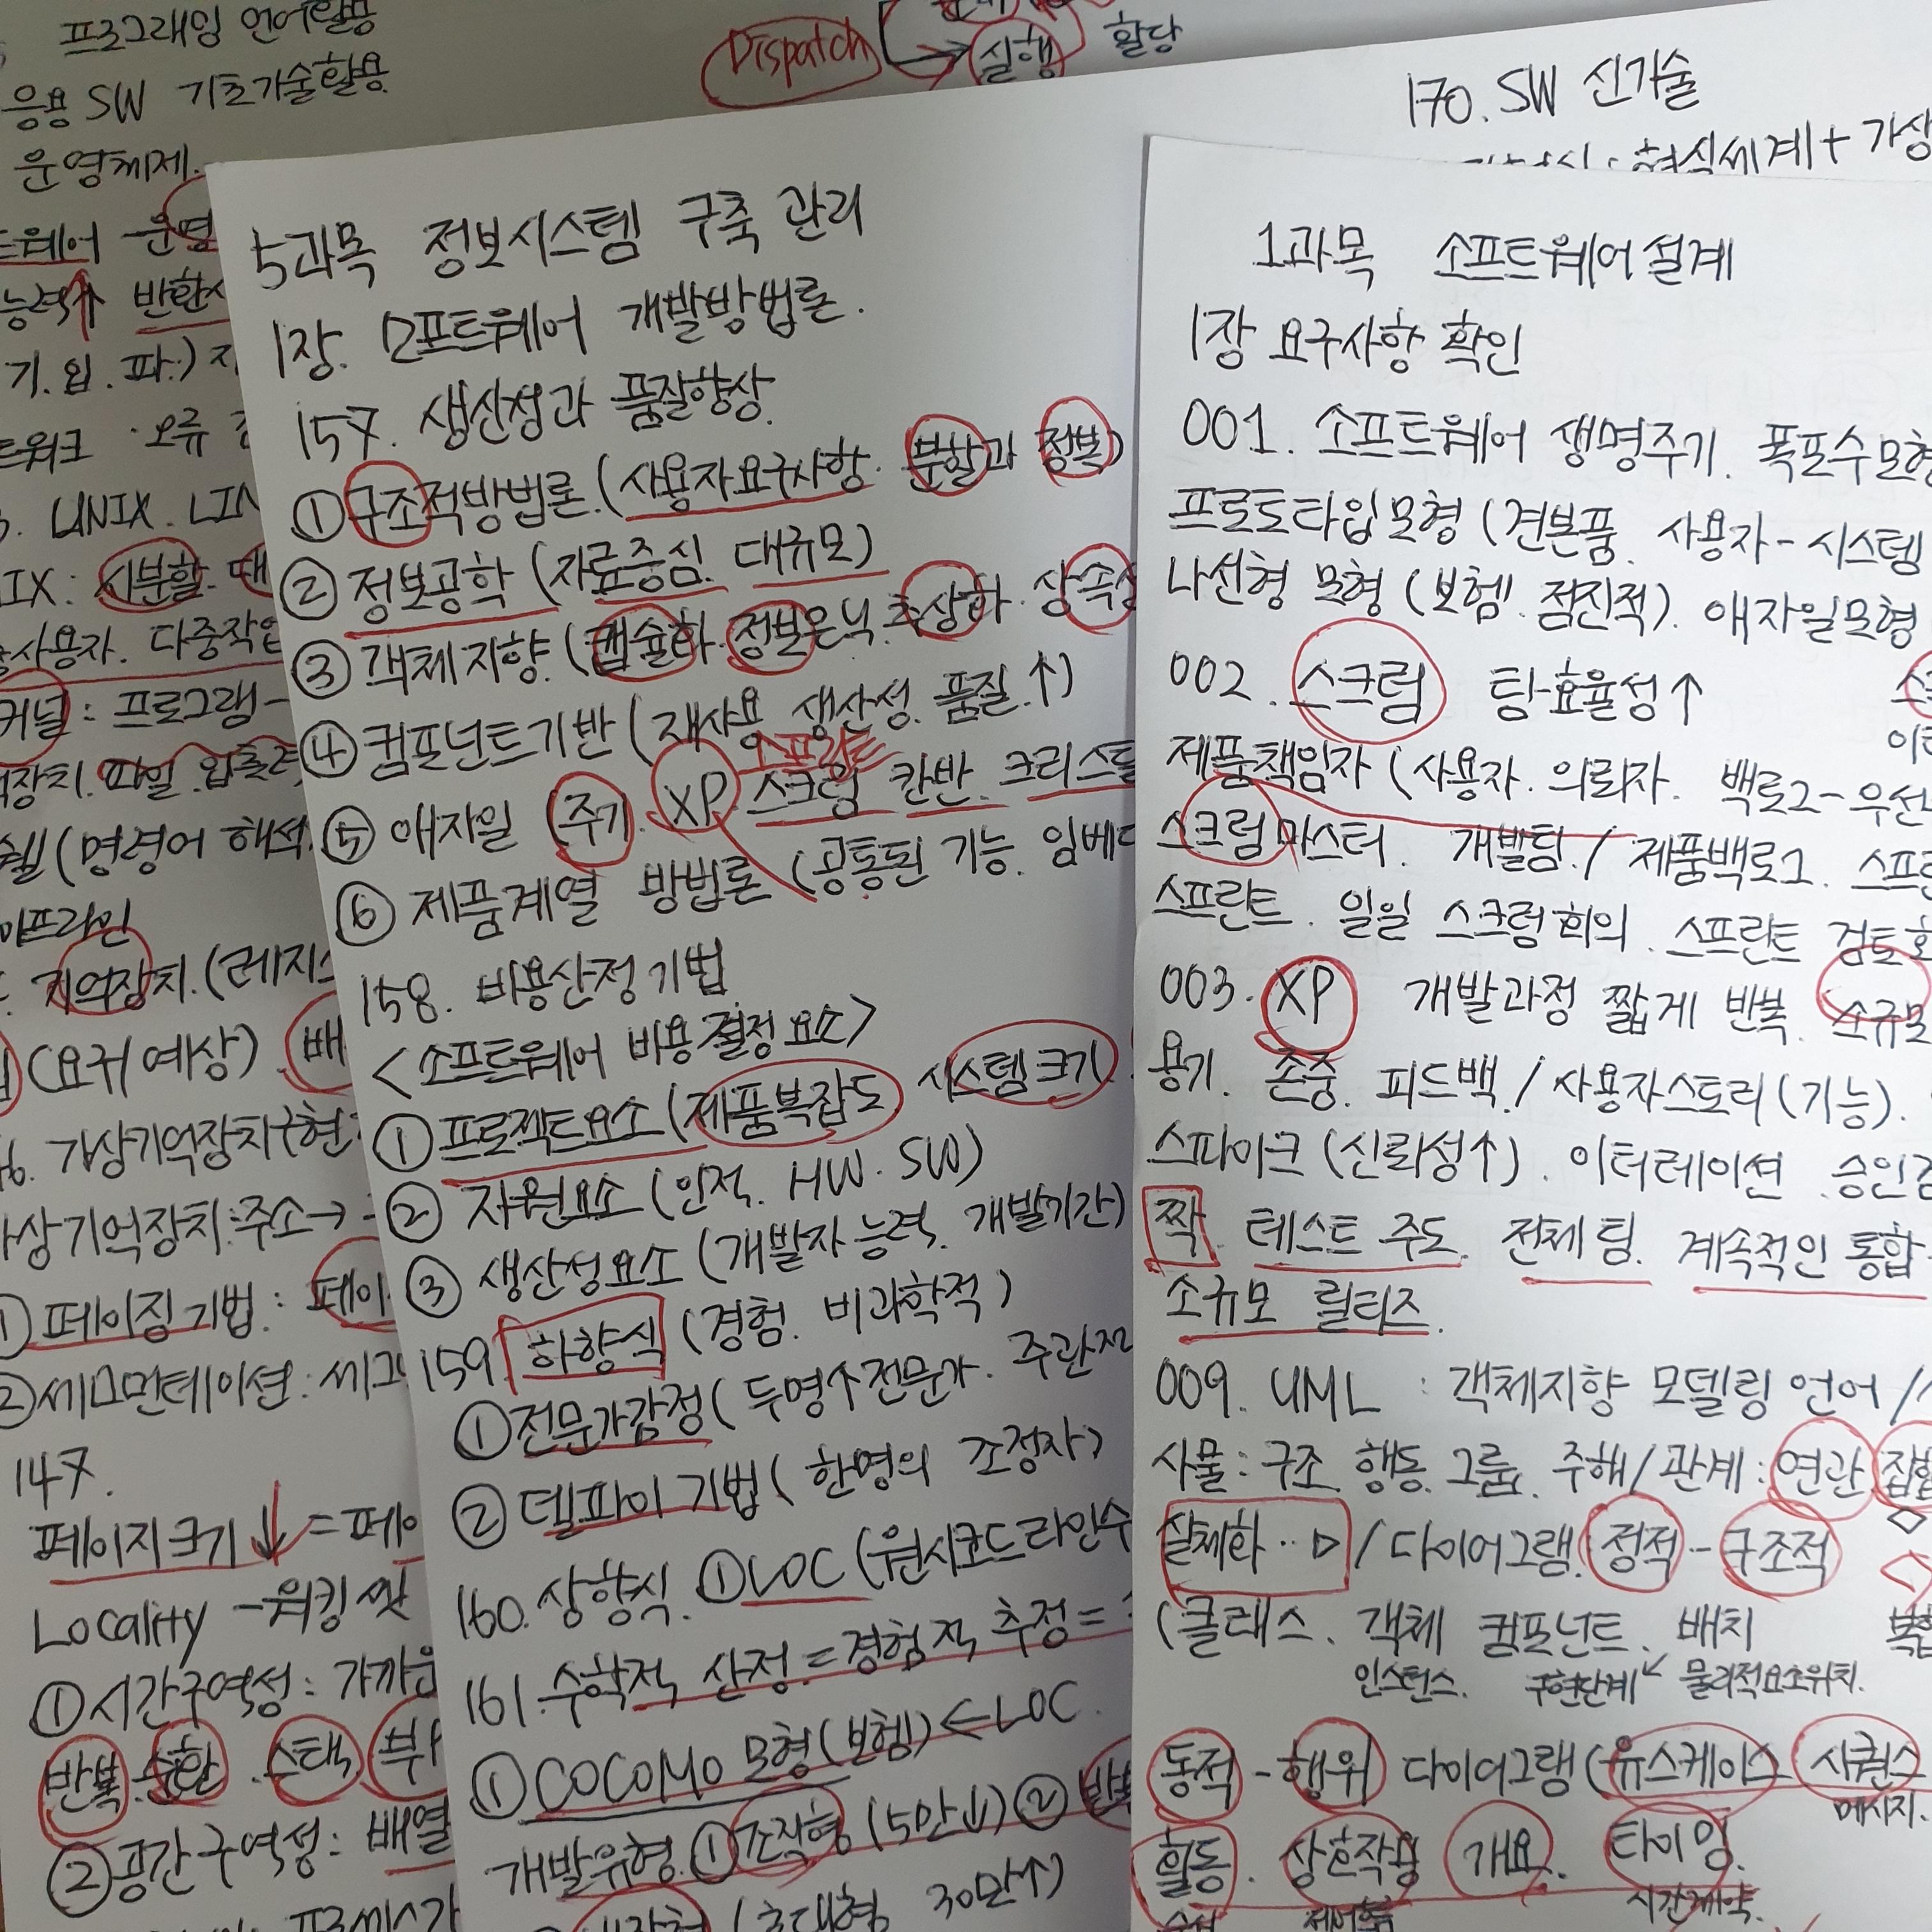 프로그래밍 언어활용
응용 SW 기초기술활용
운영체제
트웨어 - 운영
능력↑ 반환시
기. 입. 파.)
트워크 · 오류
UNIX. LIN
IX: 시분할.
사용자. 다중작업
커널: 프로그램-
장치. 파일. 입출력
쉘(명령어 해석.
이프라인
기억장치.(레지스
(요구예상). 배
6. 가상기억장치구현
가상기억장치:주소→
① 페이징기법: 페이
② 세그먼테이션: 세그
147.
페이지크기↓ = 페이
Locality - 워킹 셋
① 시간구역성: 가까운
반복. 순환. 스택. 부
② 공간구역성: 배열
프로세스가
Dispatch → 실행 할당
170. SW 신기술
현실세계 + 가상
5과목 정보시스템 구축 관리
1장. 소프트웨어 개발방법론.
157. 생산성과 품질향상.
① 구조적방법론.(사용자요구사항. 분할과 정복)
② 정보공학 (자료중심. 대규모)
③ 객체지향 (캡슐화. 정보은닉. 추상화. 상속성
④ 컴포넌트기반 (재사용. 생산성. 품질.↑)
스프린트
⑤ 애자일 (주기. XP. 스크럼. 칸반. 크리스탈
⑥ 제품계열 방법론 (공통된 기능. 임베디
158. 비용산정기법
<소프트웨어 비용결정요소>
① 프로젝트요소 (제품복잡도 시스템크기.
② 자원요소 (인적. HW. SW)
③ 생산성요소 (개발자능력. 개발기간)
159. 하향식 (경험. 비과학적)
① 전문가감정 (두명↑전문가. 주관적
② 델파이기법 (한명의 조정자)
160. 상향식. ① LOC (원시코드라인수
161. 수학적 산정 = 경험적 추정 =
① COCOMO 모형(보헴) ← LOC.
개발유형. ① 조직형 (5만↓) ② 반
(초대형 30만↑)
1과목 소프트웨어설계
1장 요구사항 확인
001. 소프트웨어 생명주기. 폭포수모형
프로토타입모형 (견본품. 사용자-시스템
나선형 모형 (보헴. 점진적). 애자일모형
002. 스크럼 팀효율성↑
제품책임자 (사용자. 의뢰자. 백로그-우선
스크럼마스터. 개발팀./ 제품백로그. 스프
스프린트. 일일 스크럼회의. 스프린트 검토회
003. XP 개발과정 짧게 반복. 소규모
용기. 존중. 피드백./ 사용자스토리(기능).
스파이크 (신뢰성↑). 이터레이션. 승인검
짝. 테스트 주도. 전체팀. 계속적인 통합.
소규모 릴리즈.
009. UML : 객체지향 모델링 언어 /
사물: 구조. 행동. 그룹. 주해/ 관계: 연관 집합
실체화 ··▷ / 다이어그램: 정적 - 구조적
(클래스. 객체 컴포넌트. 배치
인스턴스. 구현단계 물리적요소위치.
동적 - 행위 다이어그램 (유스케이스 시퀀스
메시지.
활동. 상호작용 개요. 타이밍.
시간제약.